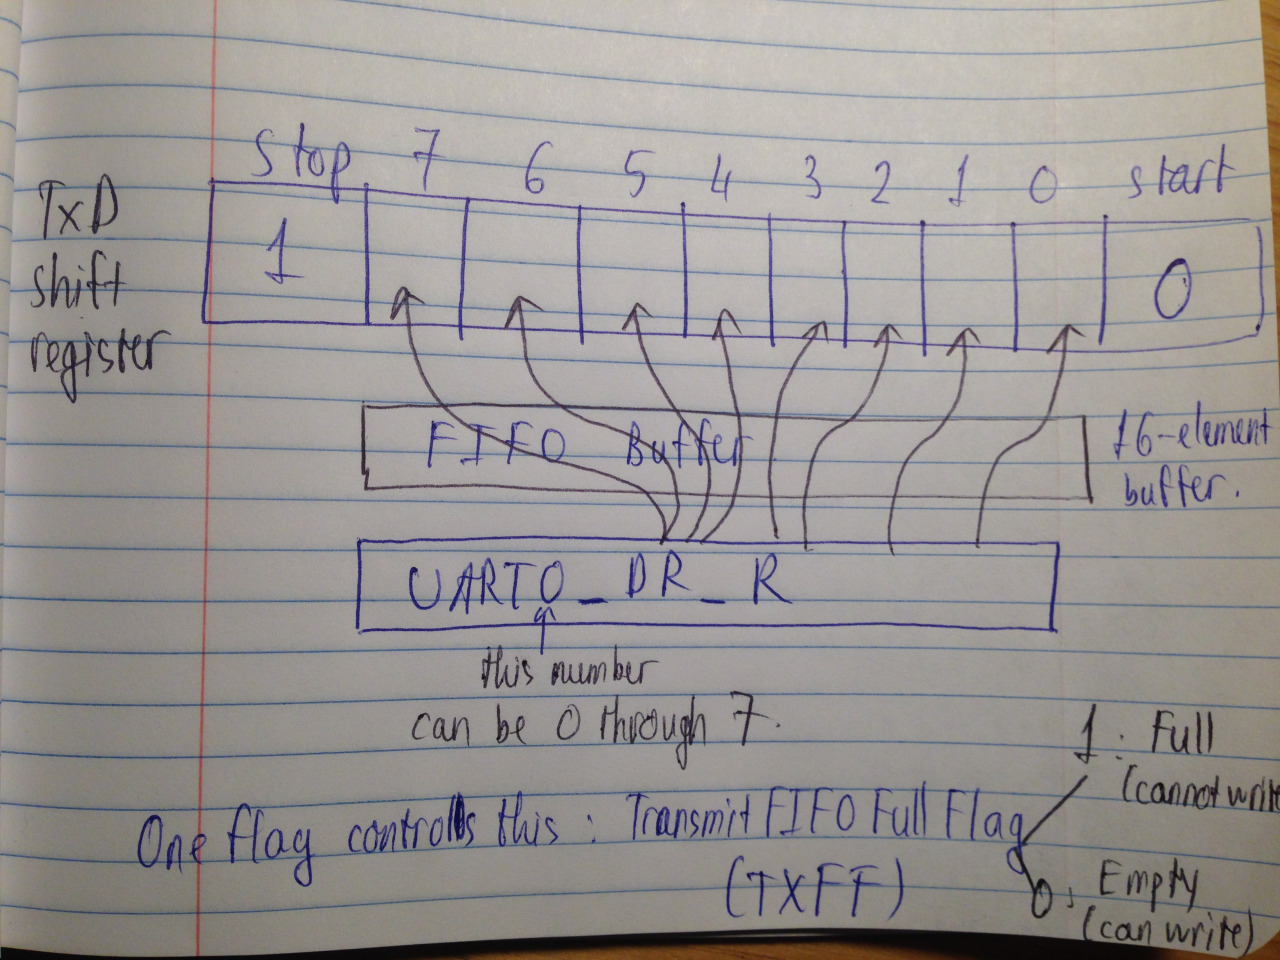 Stop 7 6 5 4 3 2 1 0 start
TxD
shift
register
1 0
FIFO Buffer
16-element
buffer.
UART0_DR_R
this number
can be 0 through 7.
One flag controls this: Transmit FIFO Full Flag
(TXFF)
1: Full
(cannot write
0: Empty
(can write)